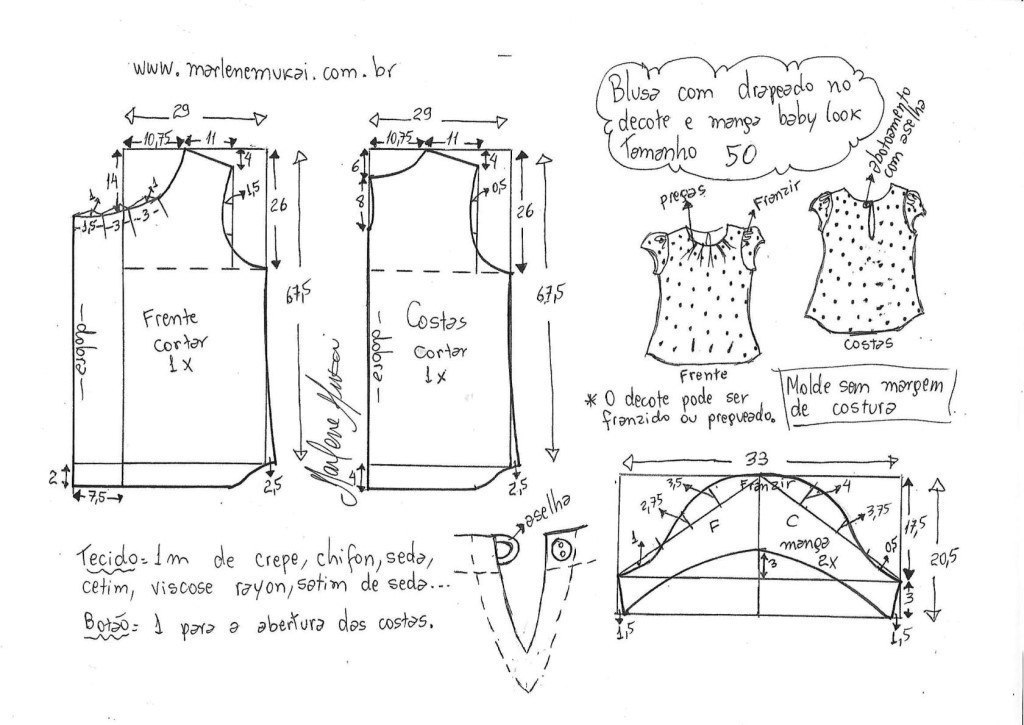 www.marlenemukai.com.br
29
10,75
11
4
14
1
1
1,5
1,5
3
3
26
67,5
dobra
Frente
cortar
1x
2
7,5
2,5
29
10,75
11
4
6
8
0,5
26
67,5
dobra
Costas
cortar
1x
4
2,5
Marlene Mukai
Blusa com drapeado no
decote e manga baby look
Tamanho 50
Pregas
Franzir
Frente
Costas
* O decote pode ser
franzido ou pregueado.
Molde sem margem
de costura
33
3,5
Franzir
4
2,75
3,75
F
C
1
0,5
manga
2x
3
17,5
20,5
3
1,5
1,5
aselha
Tecido= 1m de crepe, chifon, seda,
cetim, viscose rayon, satim de seda...
Botão= 1 para a abertura das costas.